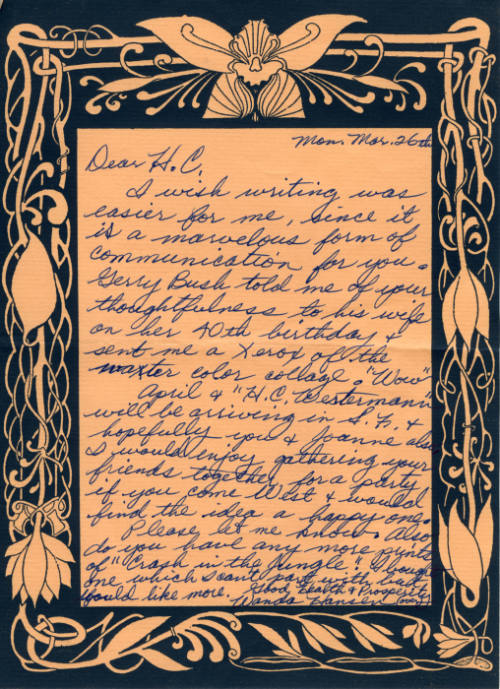 Mon. Mar. 26th
Dear H.C.
I wish writing was
easier for me, since it
is a marvelous form of
communication for you.
Gerry Bush told me of your
thoughtfulness to his wife
on her 40th birthday &
sent me a Xerox of the
water color collage. "Wow"
April & "H.C. Westermann"
will be arriving in S.F. &
hopefully you & Joanne also
I would enjoy gathering your
friends together for a party
if you come West & would
find the idea a happy one.
Please let me know. Also
do you have any more prints
of "Crash in the Jungle." I bought
one which I can't part with but
would like more. Good Health & Prosperity
Wanda Hansen (over)